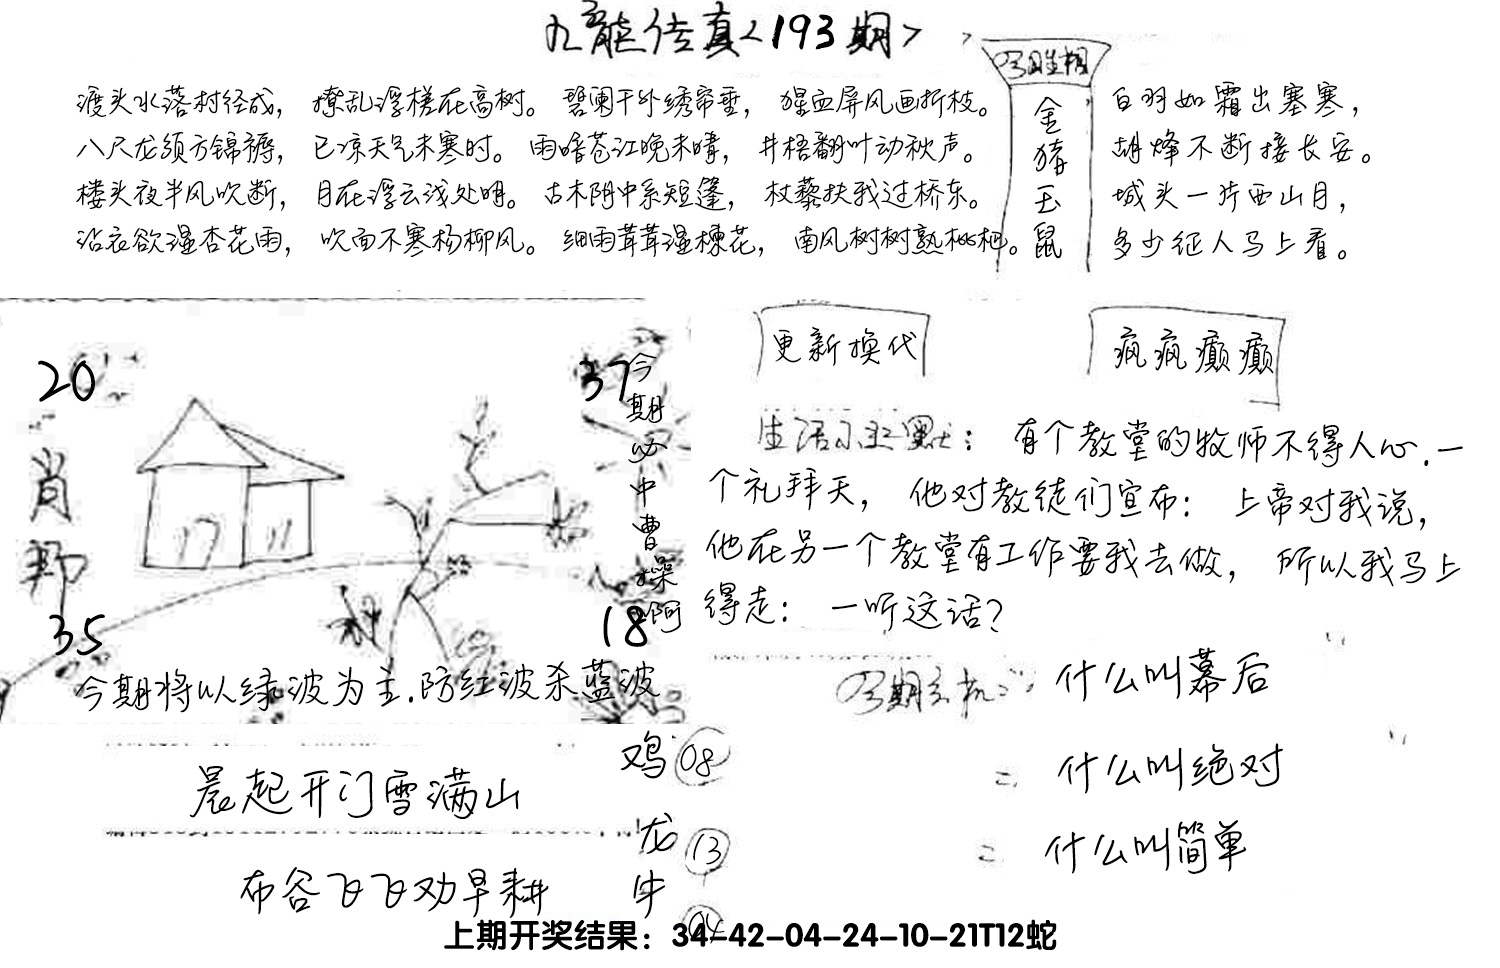 九龙传真<193期>
渡头水落村径成，撩乱浮槎在高树。碧阑干外绣帘垂，猩血屏风画折枝。
八尺龙须方锦褥，已凉天气未寒时。雨暗苍江晚未晴，井梧翻叶动秋声。
楼头夜半风吹断，月在浮云浅处明。古木阴中系短篷，杖藜扶我过桥东。
沾衣欲湿杏花雨，吹面不寒杨柳风。细雨茸茸湿楝花，南风树树熟枇杷。
金猪玉鼠
白羽如霜出塞寒，
胡烽不断接长安。
城头一片西山月，
多少征人马上看。
20
37
肖
35
18
今期必中曹操啊
今期将以绿波为主.防红波杀蓝波
更新换代
疯疯癫癫
生活小幽默：有个教堂的牧师不得人心.一
个礼拜天，他对教徒们宣布：上帝对我说，
他在另一个教堂有工作要我去做，所以我马上
得走：一听这话？
什么叫幕后
二 什么叫绝对
什么叫简单
晨起开门雪满山
布谷飞飞劝早耕
鸡 08
龙 13
牛
上期开奖结果：34-42-04-24-10-21T12蛇